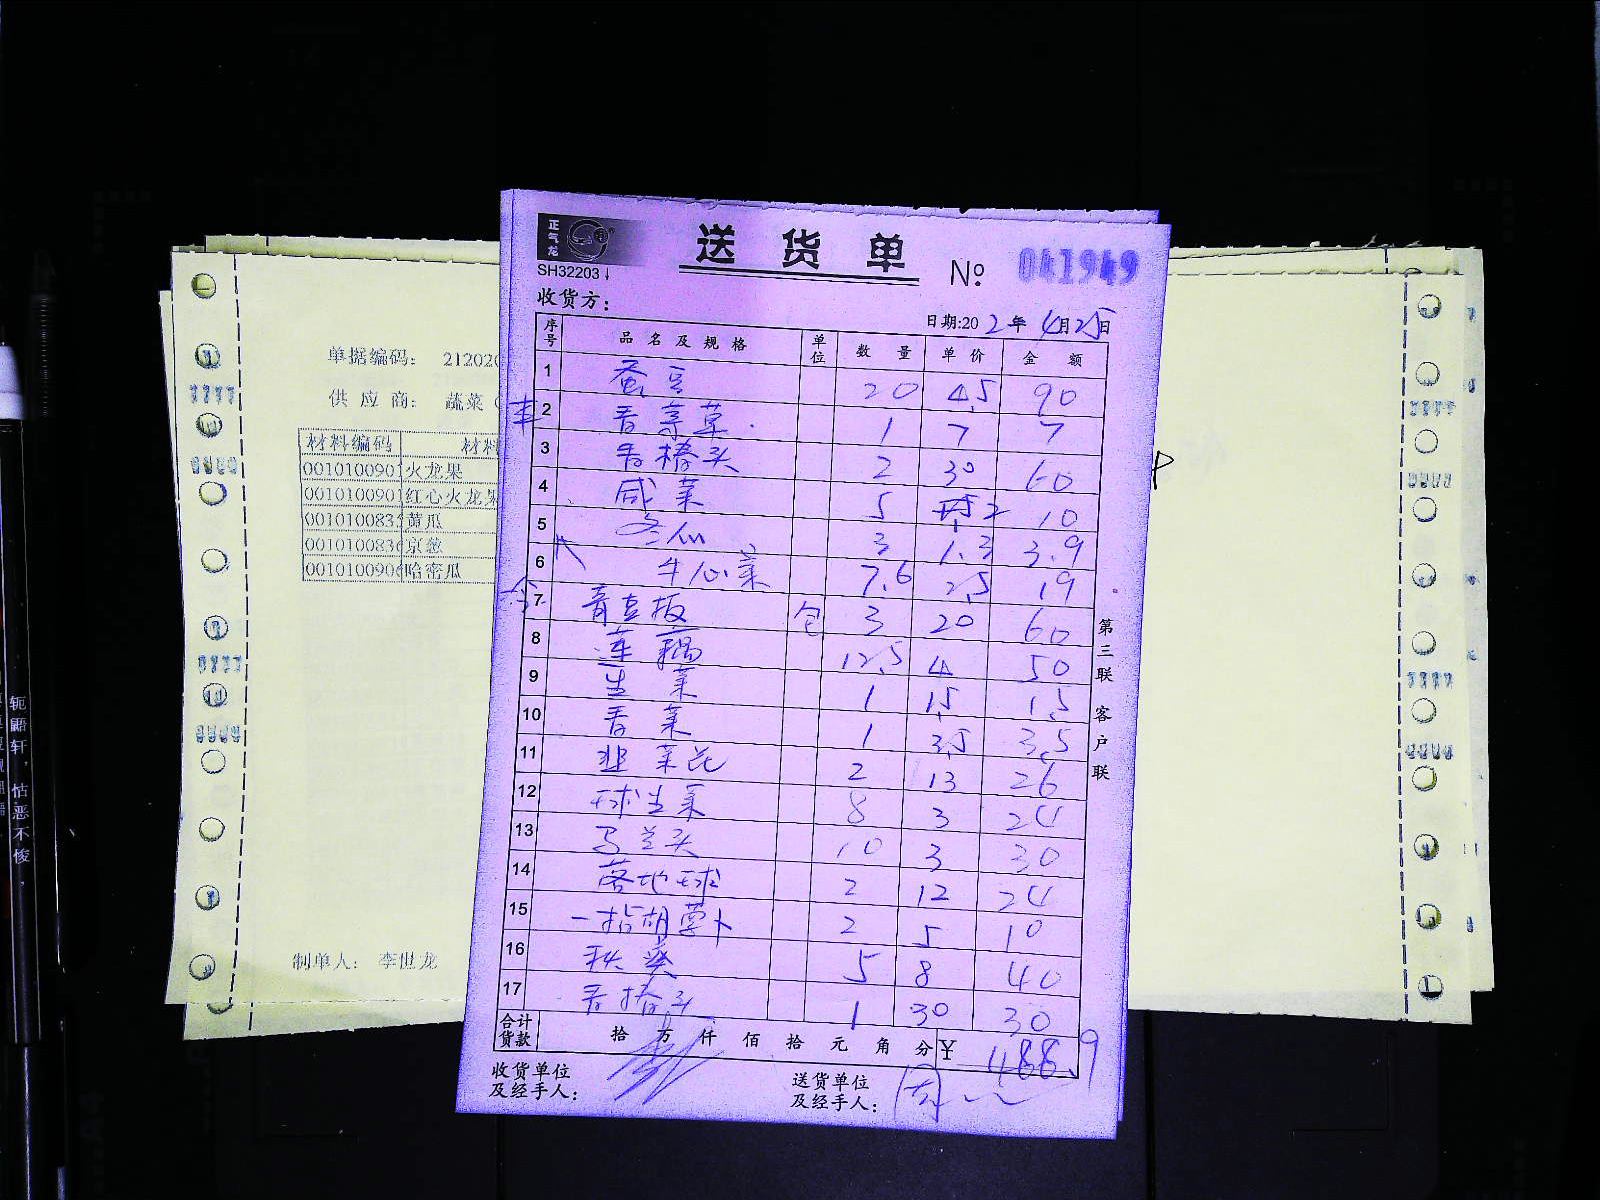 正气龙
SH32203
送货单
№ 041949
收货方：
日期:202年4月25日
序号 品名及规格 单位 数量 单价 金额
1 蚕豆 20 4.5 90
2 香菜草 1 7 7
3 香椿头 2 30 60
4 咸菜 5 2 10
5 冬瓜 3 1.3 3.9
6 牛心菜 7.6 2.5 19
7 青豆板 包 3 20 60
8 莲藕 12.5 4 50
9 生菜 1 1.5 1.5
10 香菜 1 3.5 3.5
11 韭菜花 2 13 26
12 球生菜 8 3 24
13 马兰头 10 3 30
14 落地球 2 12 24
15 一指胡萝卜 2 5 10
16 秋葵 5 8 40
17 香椿头 1 30 30
合计货款 拾 万 仟 佰 拾 元 角 分 ¥ 488.9
收货单位及经手人：
送货单位及经手人：
第三联 客户联
单据编码： 212020
供应商： 蔬菜（
材料编码 材料
0010100901 火龙果
0010100901 红心火龙果
001010083 黄瓜
001010083 京葱
001010090 哈密瓜
制单人： 李世龙
P
轭鼯轩，怙恶不悛，